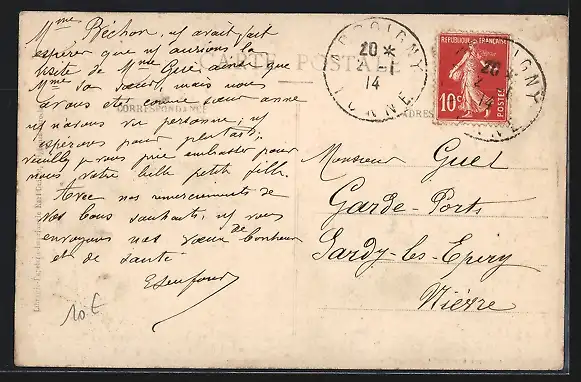 Mme Béchon, ns avait fait
espérer que ns aurions la
visite de Mme Gué ainsi que
Mme sa sœur, mais nous
avons été comme sœur anne
ns n'avons vu personne, ns
espérons pour plus tard;
veuillez je vous prie embrasser pour
nous votre belle petite fille.
Avec nos remerciements de
vos bons souhaits, ns vous
envoyons nos vœux de bonheur
et de santé
CARTE POSTALE
CORRESPONDANCE
20 *
2 - 1
14
YONNE
REPUBLIQUE FRANÇAISE
10c
POSTES
Monsieur Guet
Garde-Ports
Sardy-les-Epiry
Nièvre
10 €